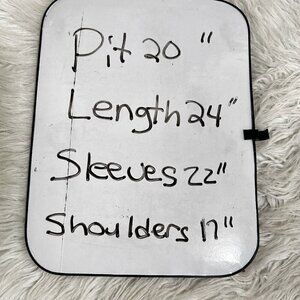 Pit 20 "
Length 24"
Sleeves 22"
Shoulders 17"